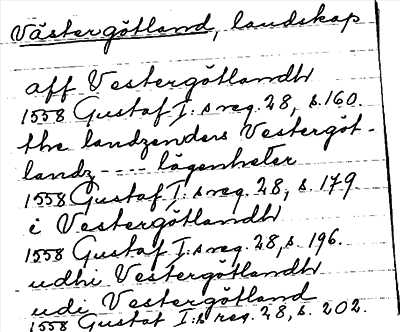 Västergötland, landskap
aff Vestergötlandh
1558 Gustaf I:s reg. 28, s. 160.
the landzenders Vestergöt-
landz ---- lägenheter
1558 Gustaf I:s reg. 28, s. 179.
i Vestergötlandh
1558 Gustaf I:s reg. 28, s. 196.
udhi Vestergötlandh
udi Vestergötland
1558 Gustaf I:s reg. 28, s. 202.